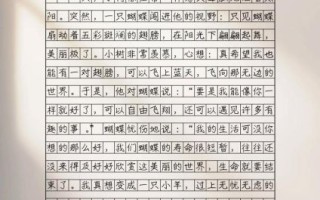 阳。突然，一只蝴蝶闯进他的视野：只见蝴蝶
扇动着五彩斑斓的翅膀，在阳光下翩翩起舞，
美丽极了。小树非常羡慕，心想：真希望我也
能有一对翅膀，可以飞上蓝天，飞向那无边的
世界。于是，他对蝴蝶说：“要是我能像你一
样就好了，可以自由飞翔，还可以遇见许多有
趣的事。”蝴蝶忧伤地说：“我的生活可没你
想的那么好，我们蝴蝶的寿命很短暂，往往还
没来得及好好欣赏这美丽的世界，生命就要结
束了。我真想变成一只小羊，过上无忧无虑的